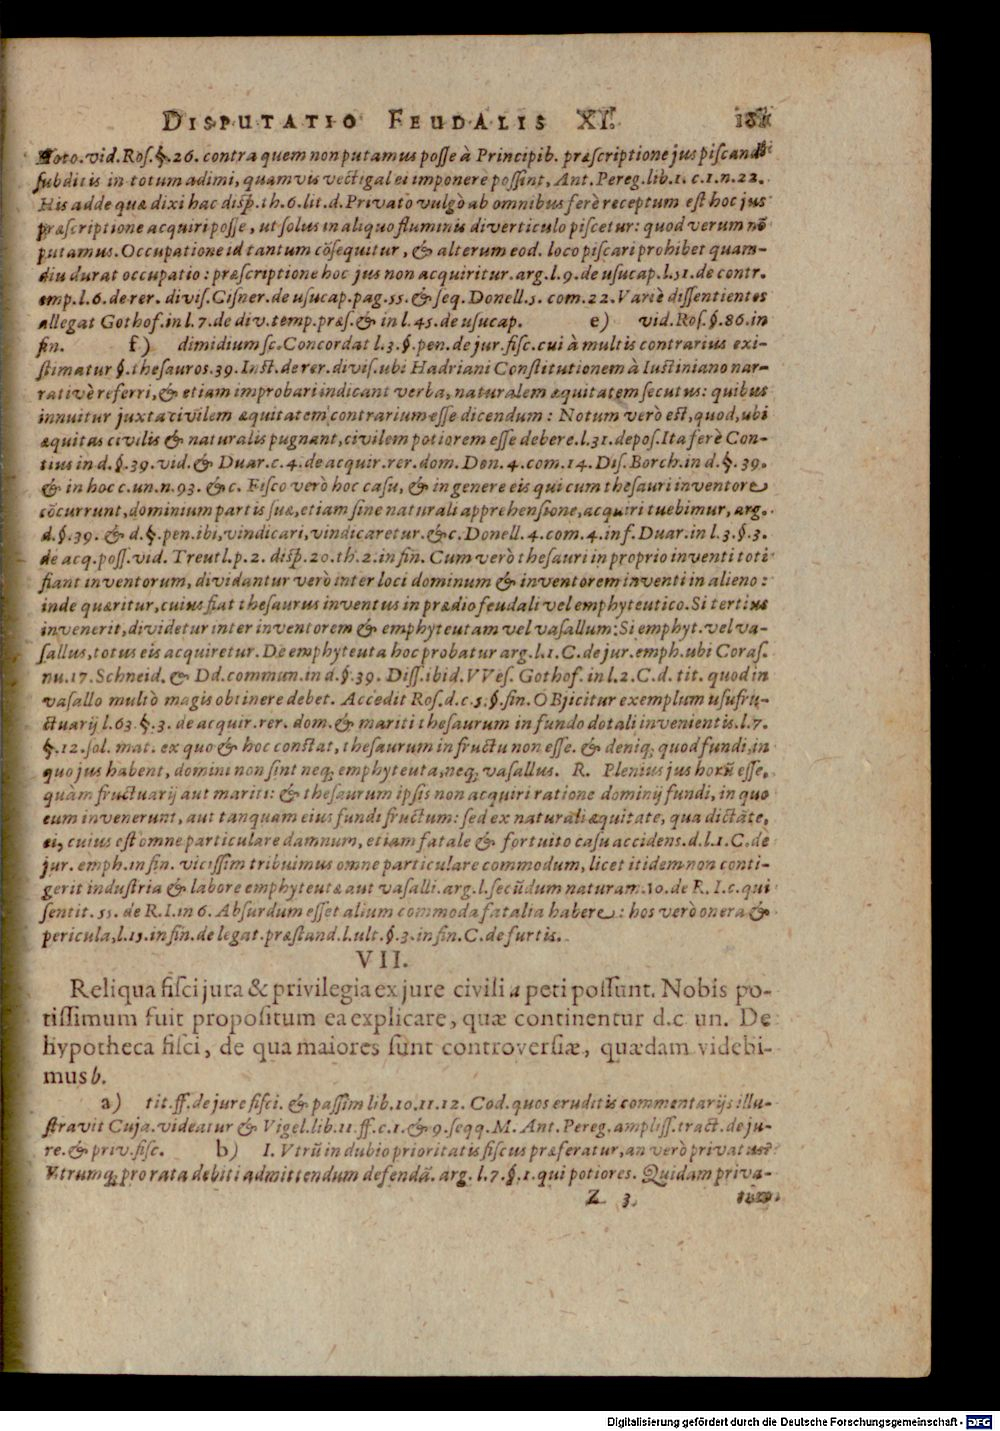 DISPUTATIO FEUDALIS XI.
Hoto.vid.Ros.§.26. contra quem non putamus posse à Principib. præscriptione jus piscandi
subditis in totum adimi, quamvis vectigal ei imponere possint, Ant. Pereg. lib. 1. c. 1. n. 22.
His adde quæ dixi hac disp. th. 6. lit. d. Privato vulgò ab omnibus ferè receptum est hoc jus
præscriptione acquiri posse, ut solus in aliquo fluminis diverticulo piscetur: quod verum nō
putamus. Occupatione id tantum cōsequitur, & alterum eod. loco piscari prohibet quam-
diu durat occupatio: præscriptione hoc jus non acquiritur. arg. l. 9. de usucap. l. 51. de contr.
emp. l. 6. de rer. divis. Cisner. de usucap. pag. 55. & seq. Donell. 5. com. 22. Variè dissentientes
allegat Gothof. in l. 7. de div. temp. præs. & in l. 45. de usucap. e) vid. Ros. §. 86. in
fin. f) dimidium sc. Concordat l. 3. §. pen. de jur. fisc. cui à multis contrarius exi-
stimatur §. thesauros. 39. Inst. de rer. divis. ubi Hadriani Constitutionem à Iustiniano nar-
rativè referri, & etiam improbari indicant verba, naturalem æquitatem secutus: quibus
innuitur juxta civilem æquitatem contrarium esse dicendum: Notum verò est, quod, ubi
æquitas civilis & naturalis pugnant, civilem potiorem esse debere. l. 31. depos. Ita ferè Con-
tius in d. §. 39. vid. & Duar. c. 4. de acquir. rer. dom. Don. 4. com. 14. Dis. Borch. in d. §. 39.
& in hoc c. un. n. 93. & c. Fisco verò hoc casu, & in genere eis qui cum thesauri inventore
cōcurrunt, dominium partis suæ, etiam sine naturali apprehensione, acquiri tuebimur, arg.
d. §. 39. & d. §. pen. ibi, vindicari, vindicaretur. &c. Donell. 4. com. 4. inf. Duar. in l. 3. §. 3.
de acq. poss. vid. Treutl. p. 2. disp. 20. th. 2. in fin. Cum verò thesauri in proprio inventi toti
fiant inventorum, dividantur verò inter loci dominum & inventorem inventi in alieno:
inde quæritur, cuius fiat thesaurus inventus in prædio feudali vel emphyteutico. Si tertius
invenerit, dividetur inter inventorem & emphyteutam vel vasallum: Si emphyt. vel va-
sallus, totus eis acquiretur. De emphyteuta hoc probatur arg. l. 1. C. de jur. emph. ubi Coras.
nu. 17. Schneid. & Dd. commun. in d. §. 39. Diss. ibid. VVes. Gothof. in l. 2. C. d. tit. quod in
vasallo multò magis obtinere debet. Accedit Ros. d. c. 5. §. fin. OBjicitur exemplum usufru-
ctuarij l. 63. §. 3. de acquir. rer. dom. & mariti thesaurum in fundo dotali invenientis. l. 7.
§. 12. sol. mat. ex quo & hoc constat, thesaurum in fructu non esse. & deniq; quod fundi, in
quo jus habent, domini non sint neq; emphyteuta, neq; vasallus. R. Plenius jus horū esse,
quàm fructuarij aut mariti: & thesaurum ipsis non acquiri ratione dominij fundi, in quo
eum invenerunt, aut tanquam eius fundi fructum: sed ex naturali æquitate, qua dictāte,
ei, cuius est omne particulare damnum, etiam fatale & fortuito casu accidens. d. l. 1. C. de
jur. emph. in fin. vicissim tribuimus omne particulare commodum, licet itidem non conti-
gerit industria & labore emphyteutæ aut vasalli. arg. l. secūdum naturam. 10. de R. I. c. qui
sentit. 55. de R. I. in 6. Absurdum esset alium commoda fatalia habere: hos verò onera &
pericula, l. 15. in fin. de legat. præstand. l. ult. §. 3. in fin. C. de furtis.
VII.
Reliqua fisci jura & privilegia ex jure civili a peti possunt. Nobis po-
tissimum fuit propositum ea explicare, quæ continentur d. c un. De
hypotheca fisci, de qua maiores sunt controversiæ, quædam videbi-
mus b.
a) tit. ff. de jure fisci. & passim lib. 10. 11. 12. Cod. quos eruditis commentarijs illu-
stravit Cuja. videatur & Vigel. lib. 11. ff. c. 1. & 9. seqq. M. Ant. Pereg. ampliss. tract. de ju-
re. & priv. fisc. b) I. Vtrū in dubio prioritatis fiscus præferatur, an verò privatus?
Vtrumq; pro rata debiti admittendum defendā. arg. l. 7. §. 1. qui potiores. Quidam priva-
Z 3